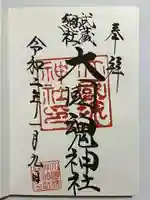 奉拝
武蔵
総社
大國魂神社
令和二年一月九日